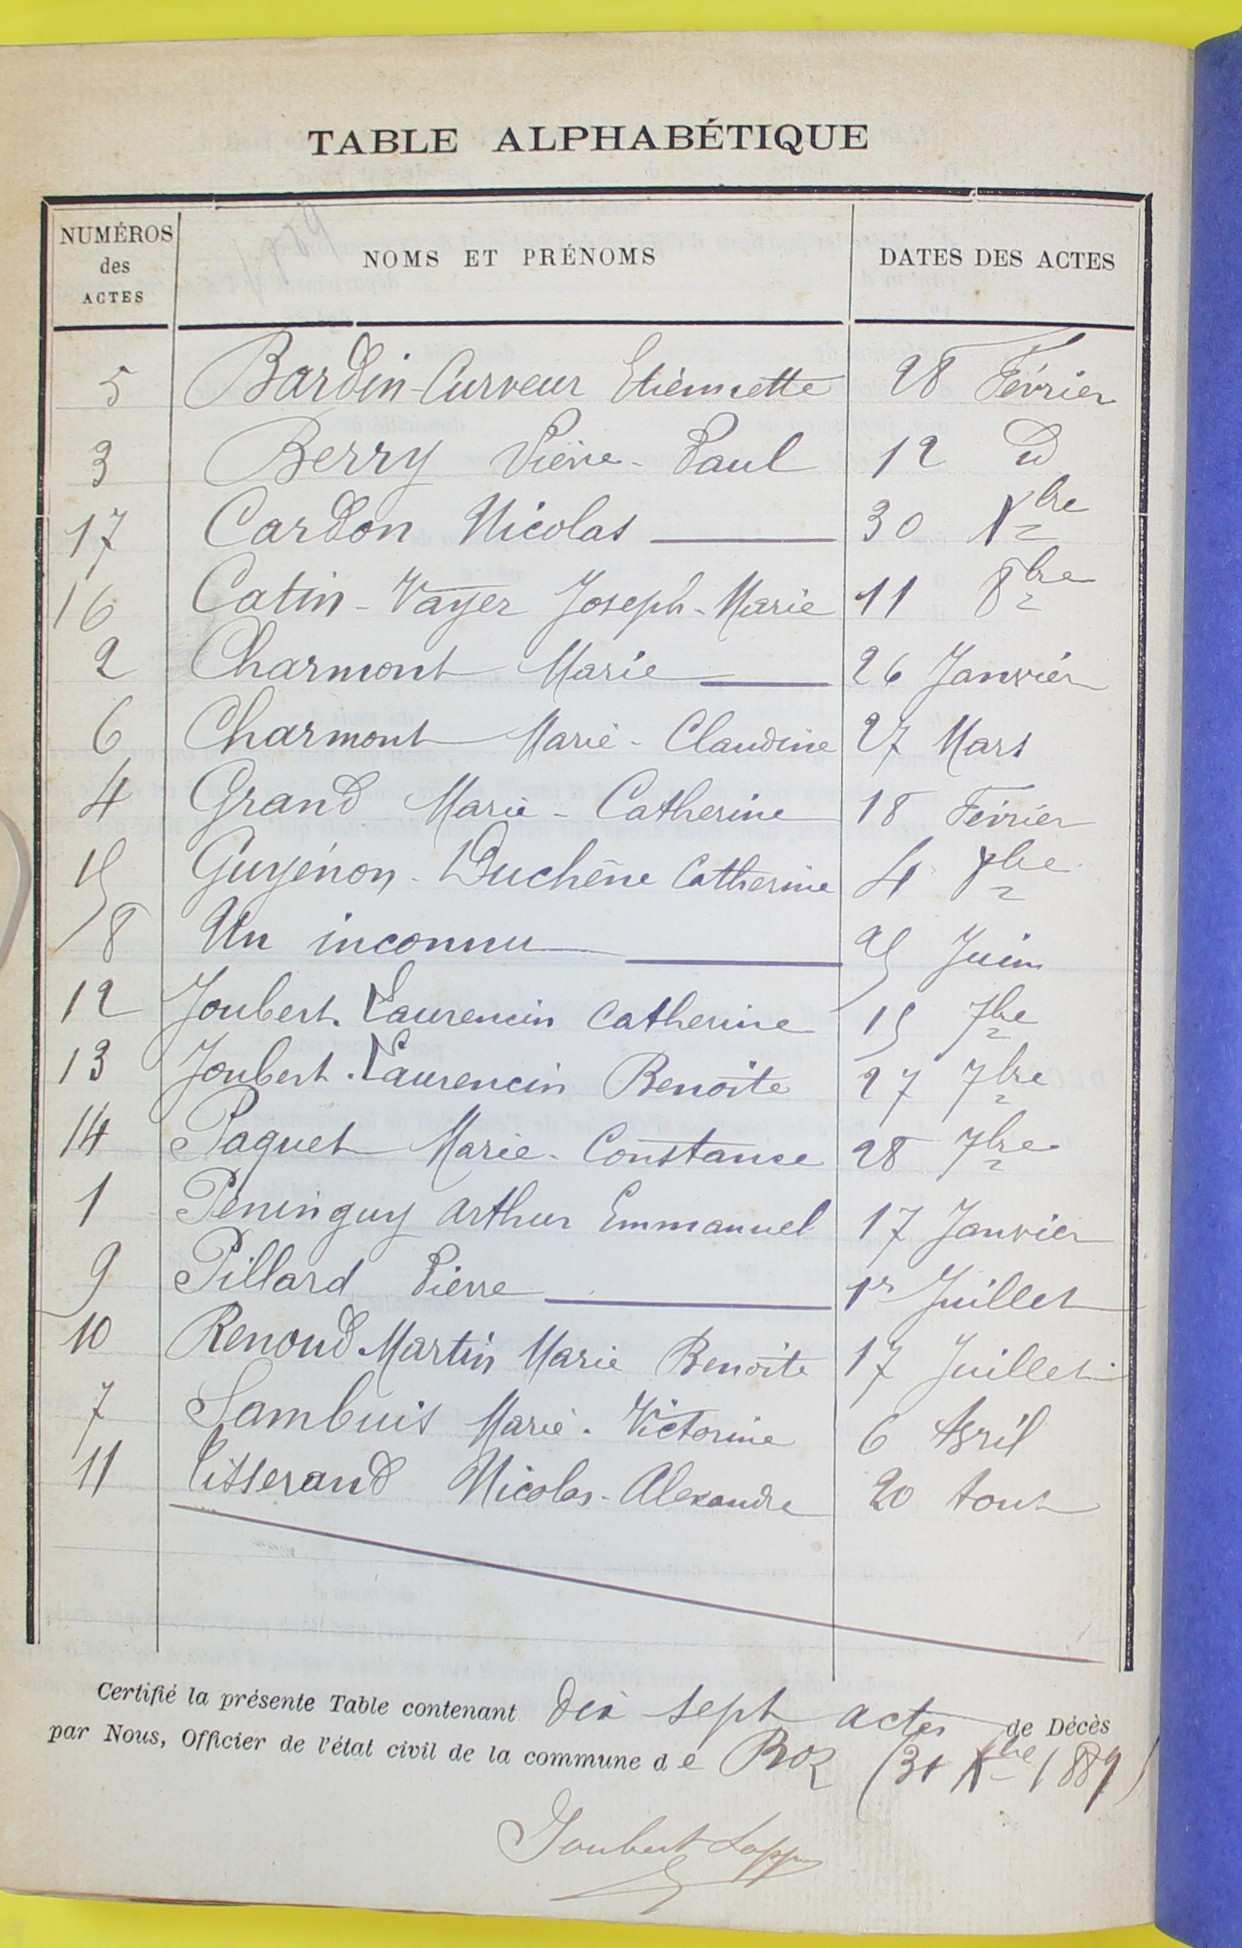 TABLE ALPHABÉTIQUE
NUMÉROS des ACTES NOMS ET PRÉNOMS DATES DES ACTES
5 Bardin-Curveur Etiennette 28 Février
3 Berry Pierre-Paul 12 d
17 Cardon Nicolas 30 Xbre
16 Catin-Vayer Joseph-Marie 11 8bre
2 Charmont Marie 26 Janvier
6 Charmont Marie-Claudine 27 Mars
4 Grand Marie-Catherine 18 Février
15 Guyénon-Duchêne Catherine 4 8bre
8 Un inconnu 25 Juin
12 Joubert-Laurencin Catherine 15 7bre
13 Joubert-Laurencin Benoite 27 7bre
14 Paquet Marie-Constance 28 7bre
1 Peninguy Arthur Emmanuel 17 Janvier
9 Pillard Pierre 1r Juillet
10 Renoud Martin Marie Benoite 17 Juillet
7 Sambuis Marie-Victorine 6 Avril
11 Tisserand Nicolas-Alexandre 20 Aout
Certifié la présente Table contenant dix sept actes de Décès
par Nous, Officier de l'état civil de la commune de Boz (31 Xbre 1889)
Joubert